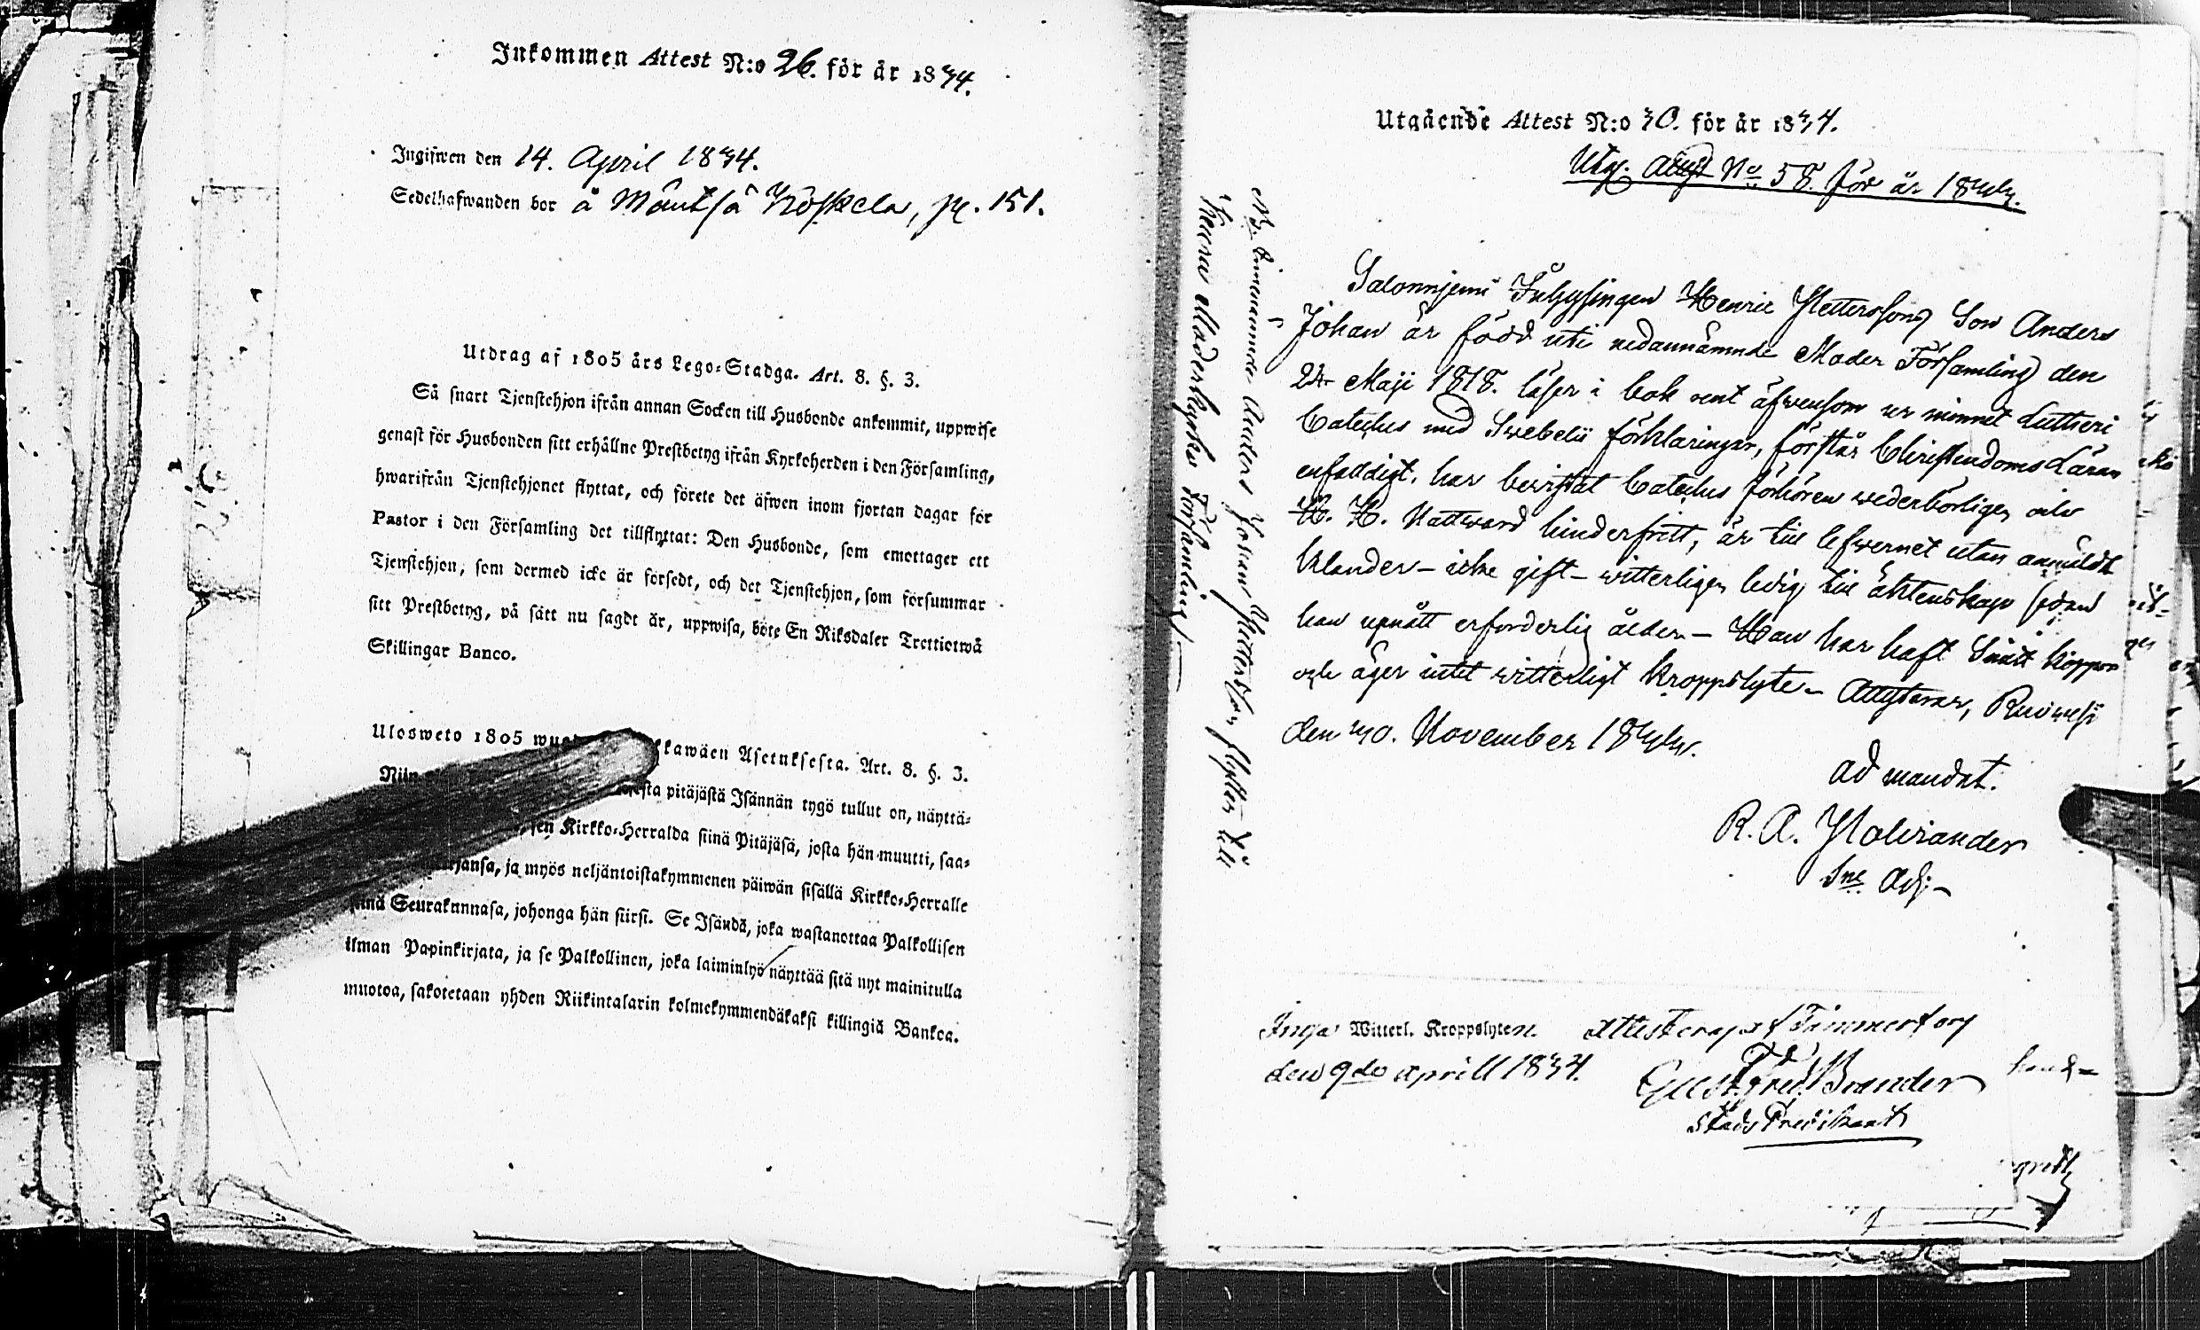 Inkommen Attest N:o 26. för år 1834.
Ingifwen den 14. April 1834.
Sedelhafwanden bor å Mäntsä Köskela, p. 151.
Utdrag af 1805 års Lego-Stadga. Art. 8. §. 3.
Så snart Tjenstehjon ifrån annan Socken till Husbonde ankommit, uppwise
genast för Husbonden sitt erhållne Prestbetyg ifrån Kyrkoherden i den Församling,
hwarifrån Tjenstehjonet flyttat, och förete det äfwen inom fjortan dagar för
Pastor i den Församling det tillflyttat: Den Husbonde, som emottager ett
Tjenstehjon, som dermed icke är försedt, och det Tjenstehjon, som försummar
sitt Prestbetyg, på sätt nu sagdt är, uppwisa, böte En Riksdaler Trettiotwå
Skillingar Banco.
Ulosweto 1805 kawäen Asetuksesta. Art. 8. §. 3.
Niin pitäjästä Isännän tygö tullut on, näyttä-
sen Kirkko-Herralda siinä Pitäjäsä, josta hän muutti, saa-
ja myös neljäntoistakymmenen päiwän sisällä Kirkko-Herralle
siinä Seurakunnasa, johonga hän siirsi. Se Isändä, joka wastanottaa Palkollisen
ilman Papinkirjata, ja se Palkollinen, joka laiminlyö näyttää sitä nyt mainitulla
muotoa, sakotetaan yhden Riikintalarin kolmekymmendäkaksi killingiä Bankoa.
Utgående Attest N:o 30. för år 1834.
Utg. Attest No 58. för år 1844.
Henric son Anders
Johan är född uti nedannämnde Moder Församling den
Maji 1818. läser i bok rent äfwensom ur minnet Lutheri
Cateches med Swebelii förklaringar, förstår Christendoms Läran
enfaldigt, har bewistat Cateches förhören wederbörligen och
H. H. Nattward hinderfritt, är till lefwernet utan anmäldt
klander – icke gift – witterligen ledig till äktenskap sedan
han upnått erforderlig ålder – Han har haft koppor
och äger intet witterligt kroppslyte – Attesterar, Ruowesi
den 30. November 1844.
ad mandat.
R. A.
Adj:
Inga Witterl. Kroppslyten. Attesterar af Tammerfors
den 9de aprill 1834. Gust. Fred. Brander
Stads Predikant
Anders Johan flyttar till
Moderkyrko Församling